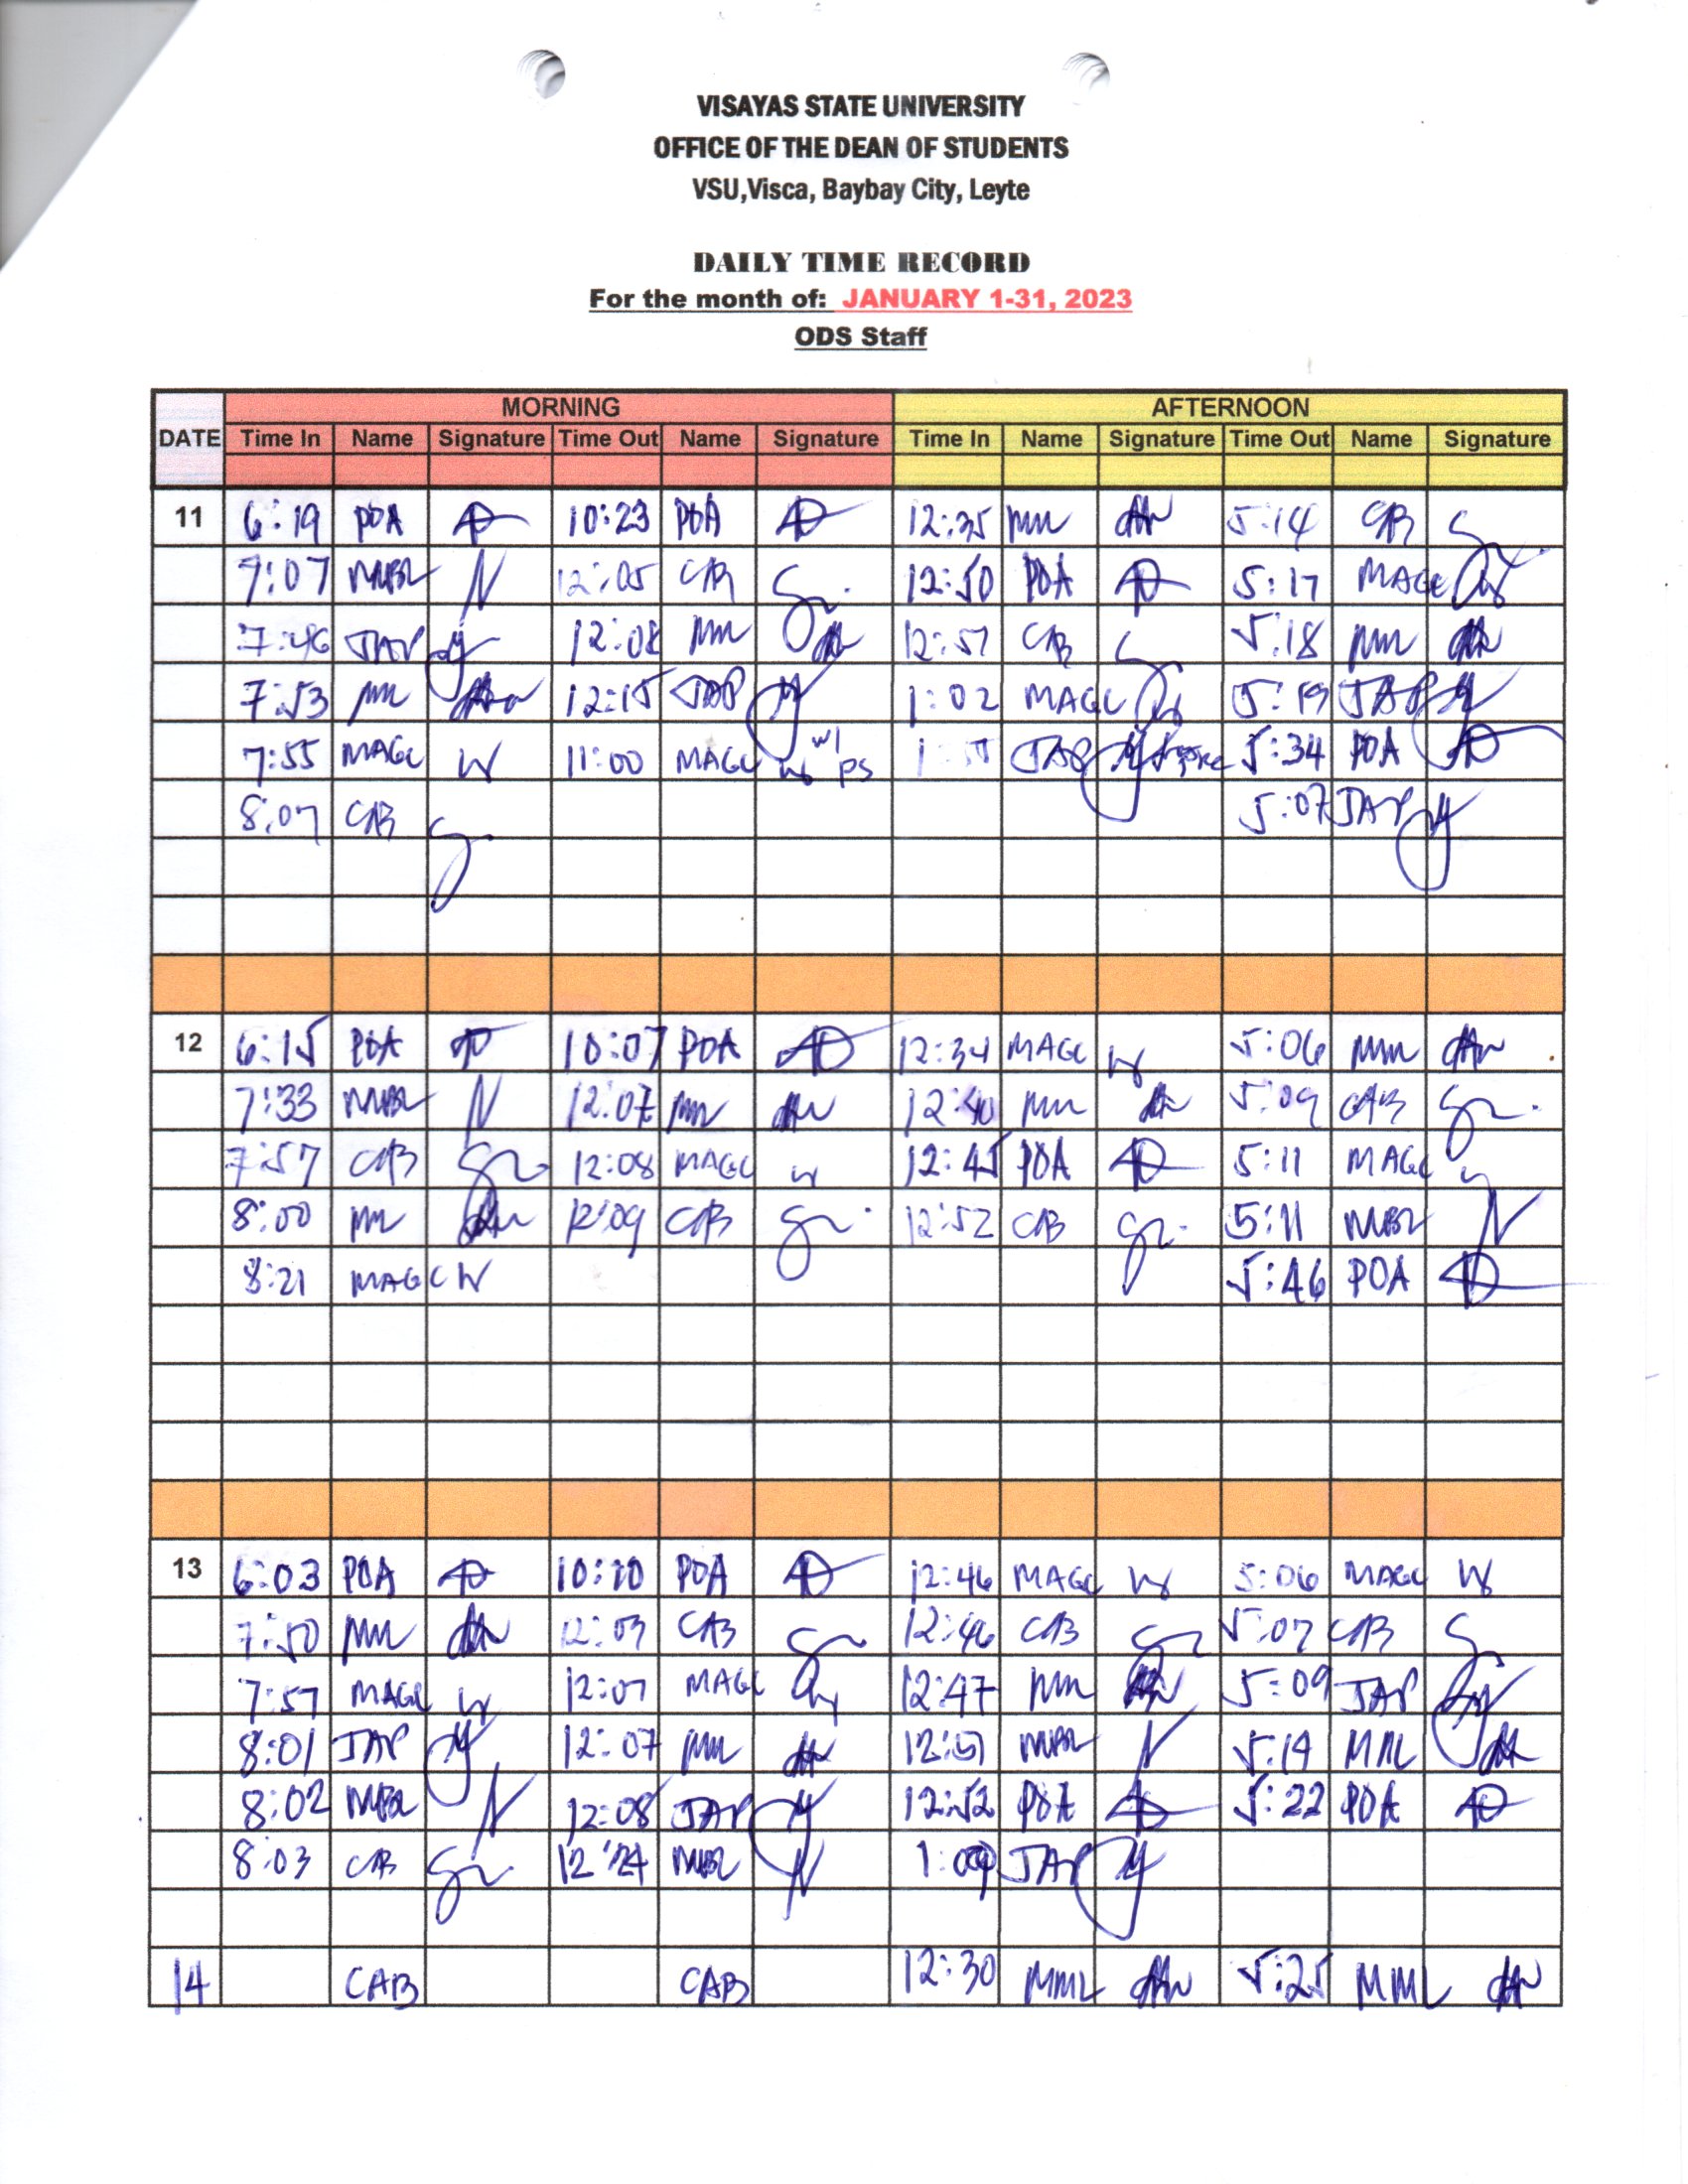 VISAYAS STATE UNIVERSITY
OFFICE OF THE DEAN OF STUDENTS
VSU,Visca, Baybay City, Leyte
DAILY TIME RECORD
For the month of: JANUARY 1-31, 2023
ODS Staff
MORNING AFTERNOON
DATE Time In Name Signature Time Out Name Signature Time In Name Signature Time Out Name Signature
11 6:19 POA 10:23 POA 12:35 5:14 CAB
7:07 MBL 12:05 CAB 12:50 POA 5:17 MAGC
7:46 JAP 12:08 12:51 CAB 5:18
7:53 12:15 JAP 1:02 MAGC 5:19 JAP
7:55 MAGC 11:00 MAGC w/ PS JAP 5:34 POA
8:07 CAB 5:07 JAP
12 6:15 POA 10:07 POA 12:34 MAGC 5:06
7:33 MBL 12:07 12:40 5:09 CAB
7:57 CAB 12:08 MAGC 12:45 POA 5:11 MAGC
8:00 12:09 CAB 12:52 CAB 5:11 MBL
8:21 MAGC 5:46 POA
13 6:03 POA 10:10 POA 12:46 MAGC 5:06 MAGC
7:50 12:03 CAB 12:46 CAB 5:07 CAB
7:57 MAGC 12:07 MAGC 12:47 5:09 JAP
8:01 JAP 12:07 12:51 MBL 5:19 MML
8:02 MBL 12:08 JAP 12:52 POA 5:22 POA
8:03 CAB 12:24 MBL JAP
14 CAB CAB 12:30 MML 5:25 MML